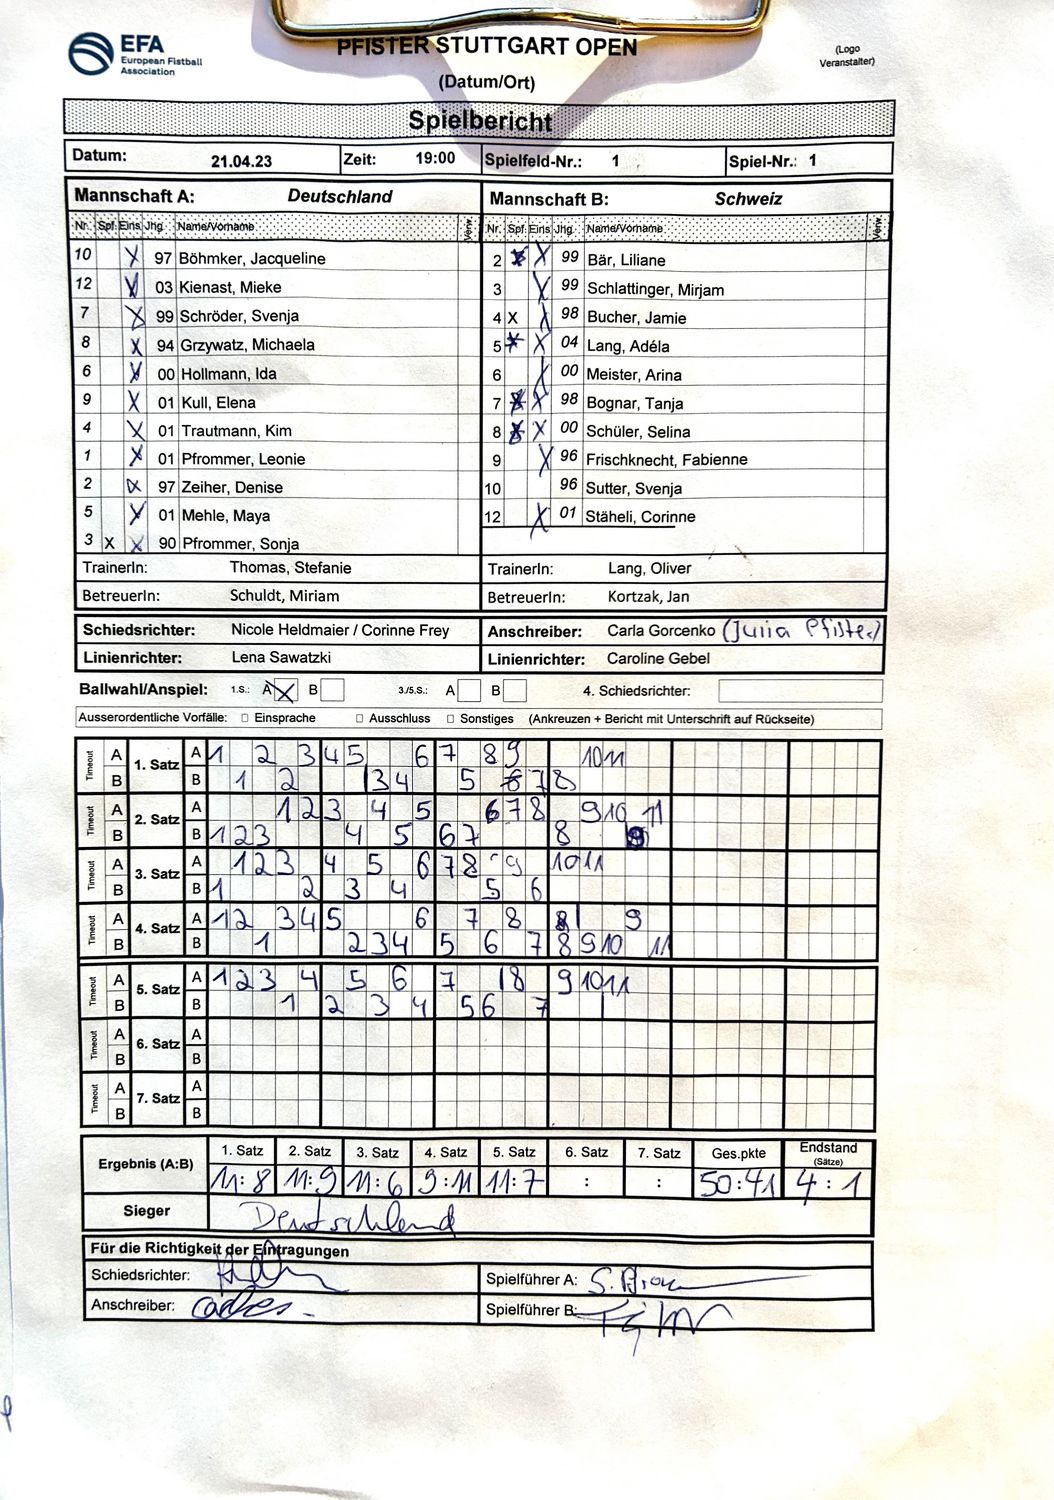 EFA
European Fistball
Association
PFISTER STUTTGART OPEN
(Logo
Veranstalter)
(Datum/Ort)
Spielbericht
Datum: 21.04.23 Zeit: 19:00 Spielfeld-Nr.: 1 Spiel-Nr.: 1
Mannschaft A: Deutschland Mannschaft B: Schweiz
Nr. Spf. Eins Jhg. Name/Vorname Verw. Nr. Spf. Eins Jhg. Name/Vorname Verw.
10 X 97 Böhmker, Jacqueline 2 X 99 Bär, Liliane
12 X 03 Kienast, Mieke 3 X 99 Schlattinger, Mirjam
7 X 99 Schröder, Svenja 4 X X 98 Bucher, Jamie
8 X 94 Grzywatz, Michaela 5 X 04 Lang, Adéla
6 X 00 Hollmann, Ida 6 X 00 Meister, Arina
9 X 01 Kull, Elena 7 X 98 Bognar, Tanja
4 X 01 Trautmann, Kim 8 X 00 Schüler, Selina
1 X 01 Pfrommer, Leonie 9 X 96 Frischknecht, Fabienne
2 X 97 Zeiher, Denise 10 96 Sutter, Svenja
5 X 01 Mehle, Maya 12 X 01 Stäheli, Corinne
3 X X 90 Pfrommer, Sonja
TrainerIn: Thomas, Stefanie TrainerIn: Lang, Oliver
BetreuerIn: Schuldt, Miriam BetreuerIn: Kortzak, Jan
Schiedsrichter: Nicole Heldmaier / Corinne Frey Anschreiber: Carla Gorcenko (Julia Pfister)
Linienrichter: Lena Sawatzki Linienrichter: Caroline Gebel
Ballwahl/Anspiel: 1.S.: A X B 3./5.S.: A B 4. Schiedsrichter:
Ausserordentliche Vorfälle: Einsprache Ausschluss Sonstiges (Ankreuzen + Bericht mit Unterschrift auf Rückseite)
Timeout A 1. Satz A 1 2 3 4 5 6 7 8 9 10 11
B B 1 2 3 4 5 6 7 8
Timeout A 2. Satz A 1 2 3 4 5 6 7 8 9 10 11
B B 1 2 3 4 5 6 7 8 9
Timeout A 3. Satz A 1 2 3 4 5 6 7 8 9 10 11
B B 1 2 3 4 5 6
Timeout A 4. Satz A 1 2 3 4 5 6 7 8 9
B B 1 2 3 4 5 6 7 8 9 10 11
Timeout A 5. Satz A 1 2 3 4 5 6 7 8 9 10 11
B B 1 2 3 4 5 6 7
Timeout A 6. Satz A
B B
Timeout A 7. Satz A
B B
Ergebnis (A:B) 1. Satz 2. Satz 3. Satz 4. Satz 5. Satz 6. Satz 7. Satz Ges.pkte Endstand (Sätze)
11:8 11:9 11:6 9:11 11:7 : : 50:41 4:1
Sieger Deutschland
Für die Richtigkeit der Eintragungen
Schiedsrichter: Spielführer A:
Anschreiber: Spielführer B: